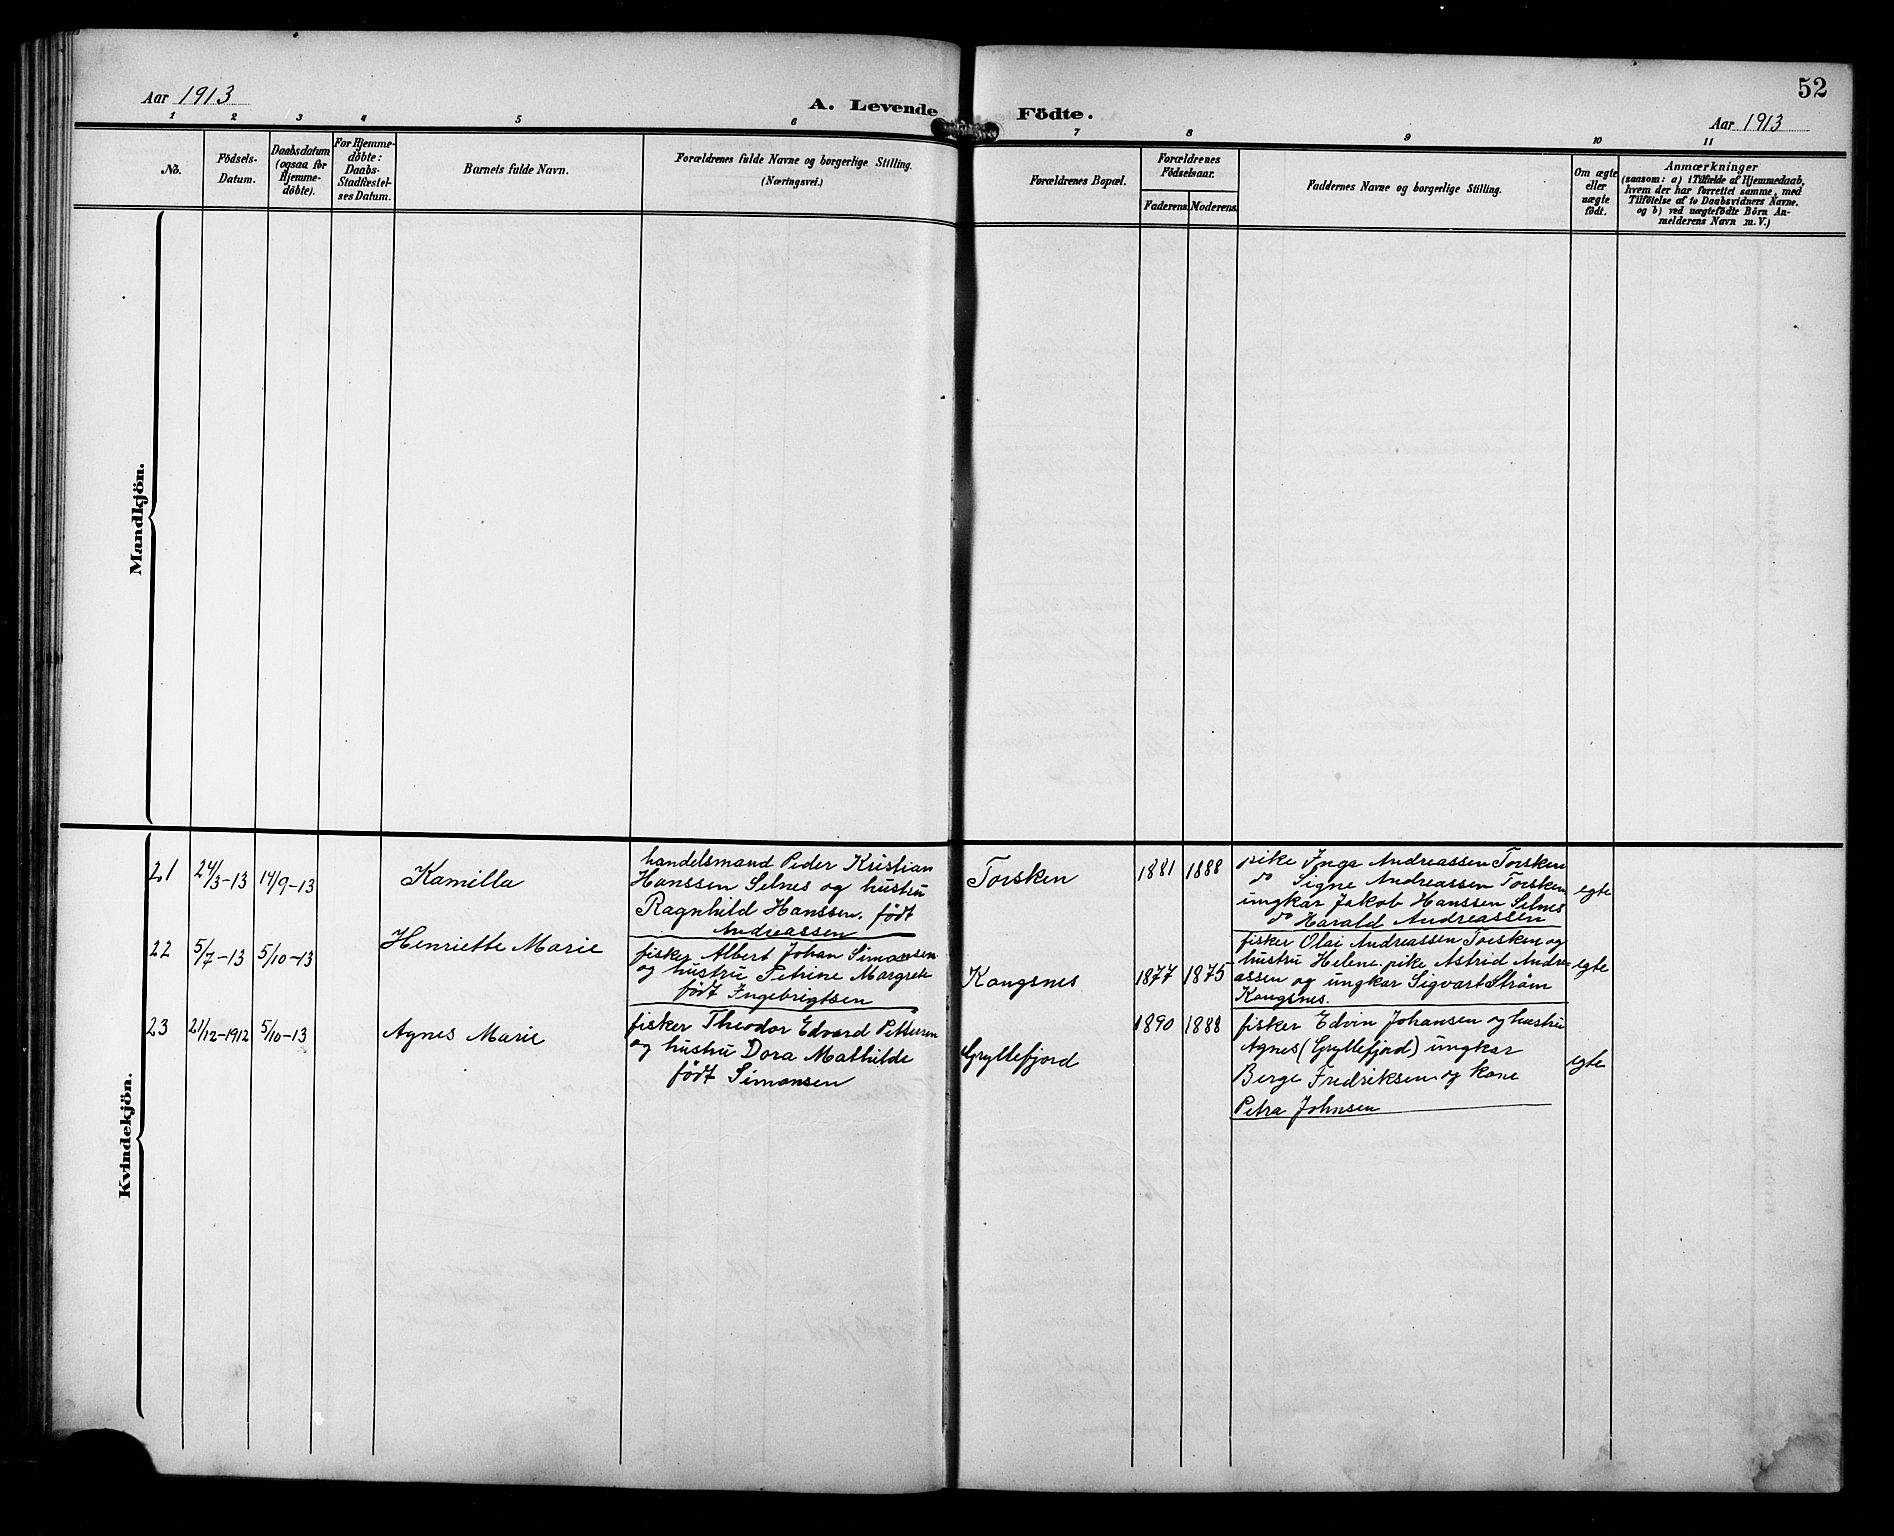 52
Aar 1913
A. Levende Födte.
Aar 1913
1 2 3 4 5 6 7 8 9 10 11
No.
Födsels-
Datum.
Daabsdatum
(ogsaa for
Hjemme-
döbte).
For Hjemme-
döbte:
Daabs-
Stadfæstel-
ses Datum.
Barnets fulde Navn.
Forældrenes fulde Navne og borgerlige Stilling.
(Næringsvei.)
Forældrenes Bopæl.
Forældrenes
Födselsaar.
Faderens. Moderens.
Faddernes Navne og borgerlige Stilling.
Om ægte
eller
uægte
födt.
Anmærkninger
(saasom: a) i Tilfælde af Hjemmedaab,
hvem der har forrettet samme, med
Tilföielse af to Daabsvidners Navne.
og b) ved uægtefödte Börn An-
melderens Navn m. V.)
Mandkjön.
Kvindekjön.
21
24/3-13
14/9-13
Kamilla
handelsmand Peder Kristian
Hanssen Selnes og hustru
Ragnhild Hanssen. født
Andreassen
Torsken
1881 1888
pike Inga Andreassen Torsken
do Signe Andreassen Torsken
ungkar Jakob Hanssen Selnes
do Harald Andreassen
egte
22
5/7-13
5/10-13
Henriette Marie
fisker Albert Johan Simonsen
og hustru Petrine Margrete
født Ingebrigtsen
Kongsnes
1877 1875
fisker Olai Andreassen Torsken og
hustru Helene. pike Astrid Andre-
assen og ungkar Sigvart Strøm
Kongsnes.
egte
23
21/12-1912
5/10-13
Agnes Marie
fisker Theodor Edvard Pettersen
og hustru Dora Mathilde
født Simonsen
Gryllefjord
1890 1888
fisker Edvin Johansen og hustru
Agnes (Gryllefjord) ungkar
Berge Fredriksen og kone
Petra Johnsen
egte